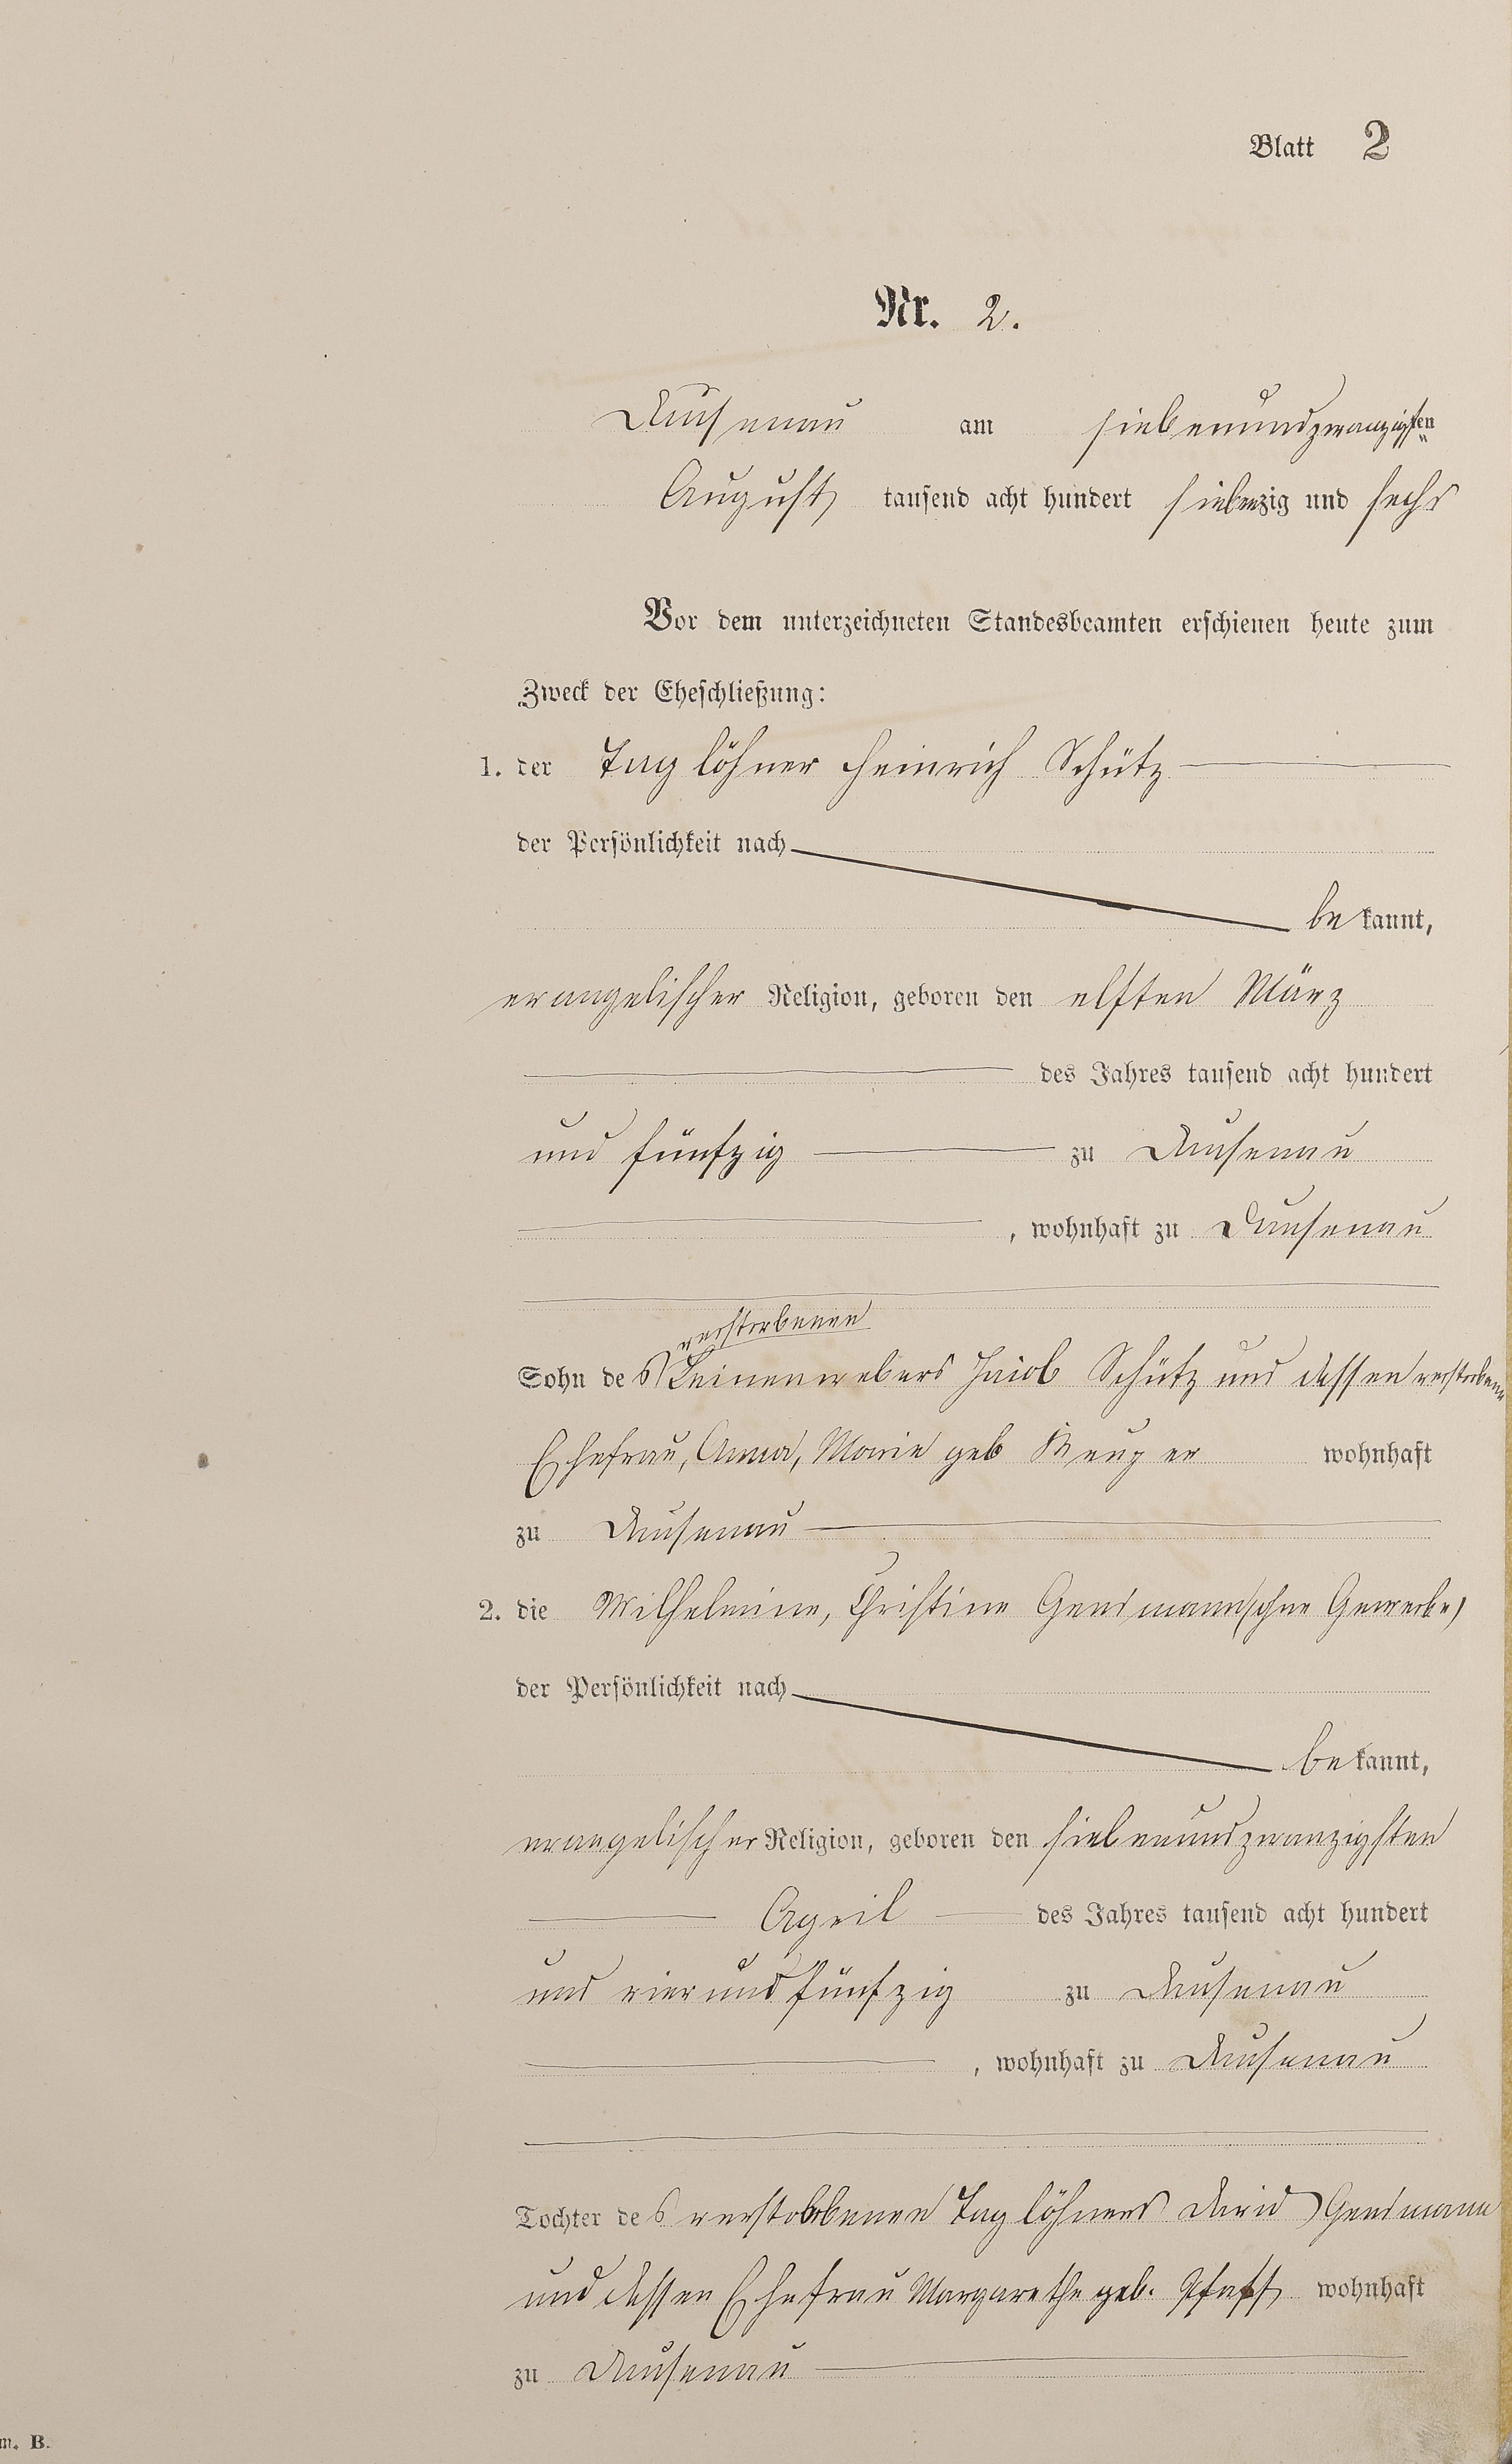 Blatt 2
Nr. 2.
Dausenau am siebenundzwanzigsten
August tausend acht hundert siebenzig und sechs
Vor dem unterzeichneten Standesbeamten erschienen heute zum
Zweck der Eheschließung:
1. der Taglöhner Heinrich Schütz
der Persönlichkeit nach
bekannt,
evangelischer Religion, geboren den elften März
des Jahres tausend acht hundert
und fünfzig zu Dausenau
, wohnhaft zu Dausenau
verstorbenen
Sohn des Leinenwebers Jacob Schütz und dessen verstorbene
Ehefrau, Anna, Marie geb wohnhaft
zu Dausenau
2. die Wilhelmine, Christine (ohne Gewerbe)
der Persönlichkeit nach
bekannt,
evangelischer Religion, geboren den siebenundzwanzigsten
April des Jahres tausend acht hundert
und vierundfünfzig zu Dausenau
, wohnhaft zu Dausenau
Tochter des verstorbenen Taglöhners David
und dessen Ehefrau Margarethe geb. Pfaff wohnhaft
zu Dausenau
m. B.